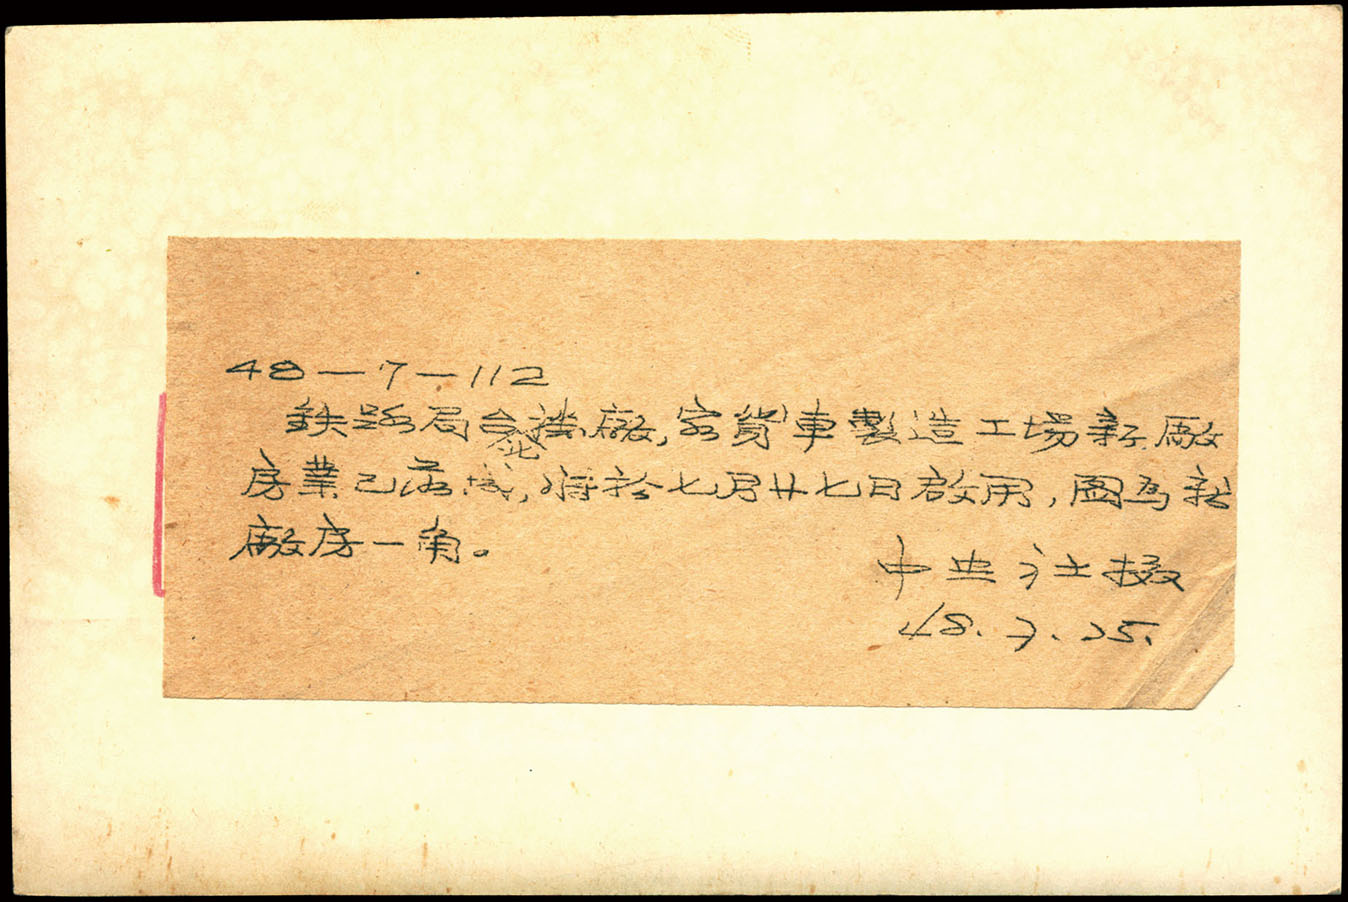 48—7—112
鉄路局台北機廠,客貨車製造工場新廠
房業已落成,將於七月廿七日啟用,圖為新
廠房一角。
中央社攝
48.7.25.